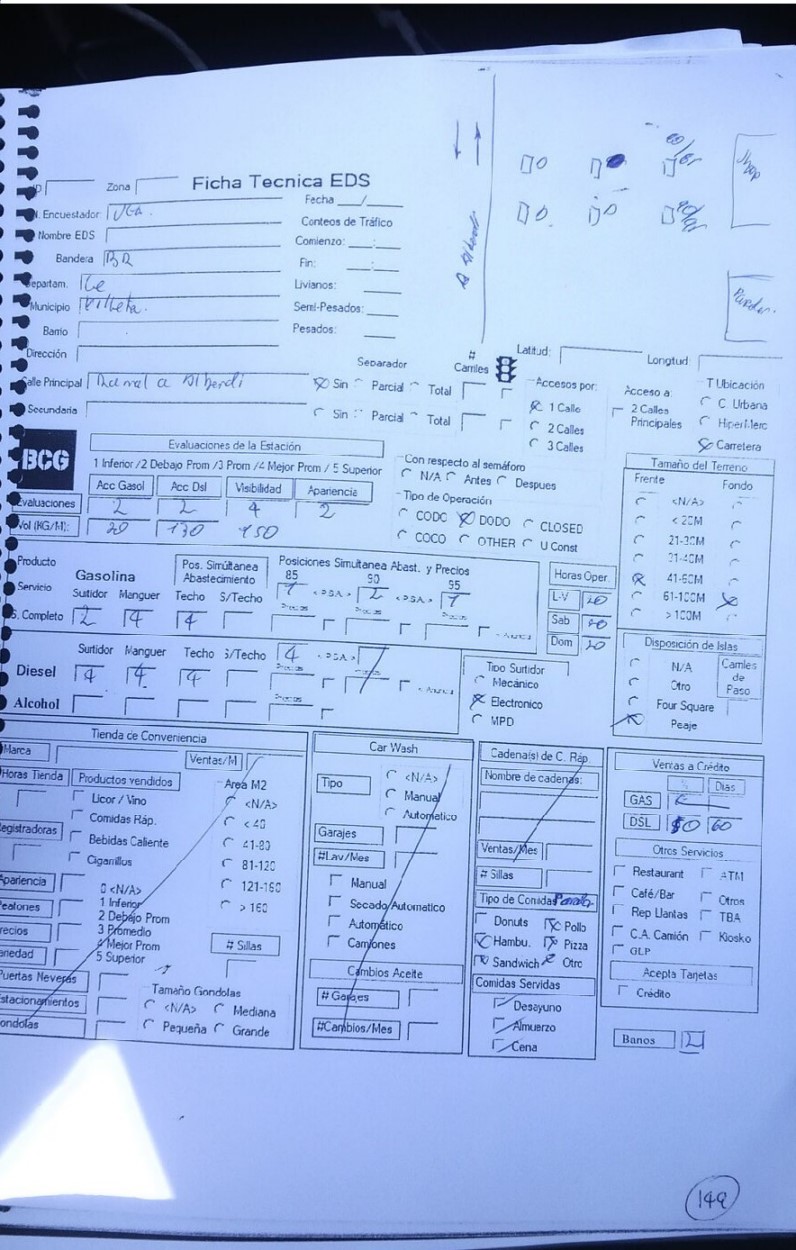 Shop
Parador.
a Alberdi
ID Zona Ficha Tecnica EDS
Fecha __/__
N. Encuestador
Nombre EDS
Bandera BR
Departam.
Municipio Villeta.
Barrio
Dirección
Conteos de Tráfico
Comienzo: __:__
Fin: __:__
Livianos:
Semi-Pesados:
Pesados:
Latitud: Longitud:
Calle Principal Ramal a Alberdi
Secundaria
Separador
# Carriles
Sin Parcial Total
Sin Parcial Total
Accesos por:
1 Calle
2 Calles
3 Calles
Acceso a:
2 Calles Principales
T Ubicación
C Urbana
HiperMerc
Carretera
BCG
Evaluaciones de la Estación
1 Inferior /2 Debajo Prom /3 Prom /4 Mejor Prom / 5 Superior
Acc Gasol Acc Dsl Visibilidad Apariencia
Evaluaciones 2 2 4 2
Vol (KG/M): 20 130 150
Con respecto al semáforo
N/A Antes Despues
Tipo de Operación
CODO DODO CLOSED
COCO OTHER U Const
Tamaño del Terreno
Frente Fondo
<N/A>
< 20M
21-30M
31-40M
41-60M
61-100M
> 100M
Producto
Servicio
Gasolina
Pos. Simúltanea Abastecimiento
Posiciones Simultanea Abast. y Precios
85 90 95
Surtidor Manguer Techo S/Techo
S. Completo 2 4 4
1 2 1
Horas Oper.
L-V 20
Sab 20
Dom 20
Surtidor Manguer Techo S/Techo
Diesel 4 4 4 4
Alcohol
Tipo Surtidor
Mecánico
Electronico
MPD
Disposición de Islas
N/A
Otro
Four Square
Peaje
Carriles de Paso
Tienda de Conveniencia
Marca Ventas/M
Horas Tienda Productos vendidos
Licor / Vino
Comidas Ráp.
Registradoras
Bebidas Caliente
Cigarrillos
Area M2
<N/A>
< 40
41-80
81-120
121-160
> 160
Apariencia
Peatones
Precios
Variedad
0 <N/A>
1 Inferior
2 Debajo Prom
3 Promedio
4 Mejor Prom
5 Superior
# Sillas
Puertas Neveras
Estacionamientos
Gondolas
Tamaño Gondolas
<N/A> Mediana
Pequeña Grande
Car Wash
Tipo
<N/A>
Manual
Automatico
Garajes
#Lav/Mes
Manual
Secado Automatico
Automático
Camiones
Cambios Aceite
# Garajes
#Cambios/Mes
Cadena(s) de C. Ráp
Nombre de cadenas:
Ventas/Mes
# Sillas
Tipo de Comidas Parador
Donuts Pollo
Hambu. Pizza
Sandwich Otro
Comidas Servidas
Desayuno
Almuerzo
Cena
Ventas a Crédito
% Dias
GAS
DSL 80 60
Otros Servicios
Restaurant ATM
Café/Bar Otros
Rep Llantas TBA
C.A. Camión Kiosko
GLP
Acepta Tarjetas
Crédito
Banos 2
149